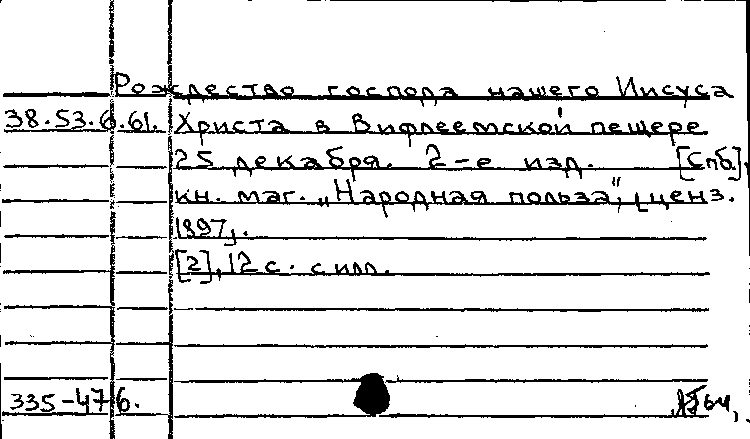 Рождество господа нашего Иисуса
38.53.6.61. Христа в Вифлеемской пещере
25 декабря. 2-е изд. [Спб.],
кн. маг. „Народная польза“, [ценз.
1897].
[2], 12 с. с илл.
335-476.